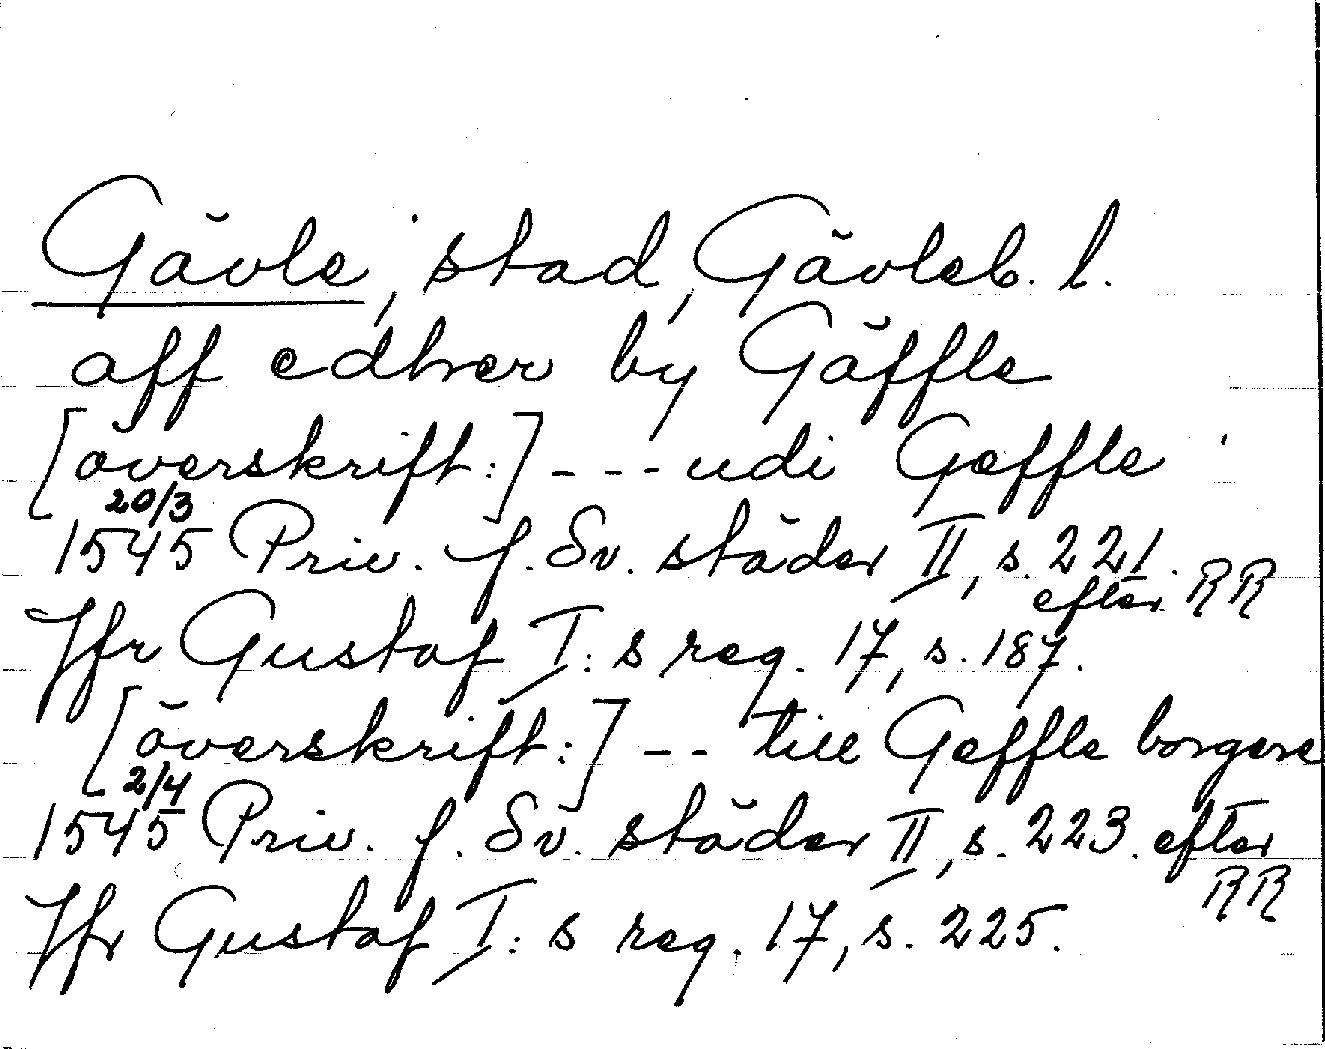 Gävle, stad, Gävleb. l.
aff edher by Gäffle
[överskrift:] --- udi Geffle
20/3
1545 Priv. f. Sv. städer II, s. 221.
efter RR
Jfr Gustaf I:s reg. 17, s. 187.
[överskrift:] -- till Geffle borgere
2/4
1545 Priv. f. Sv. städer II, s. 223. efter
RR
Jfr Gustaf I:s reg. 17, s. 225.